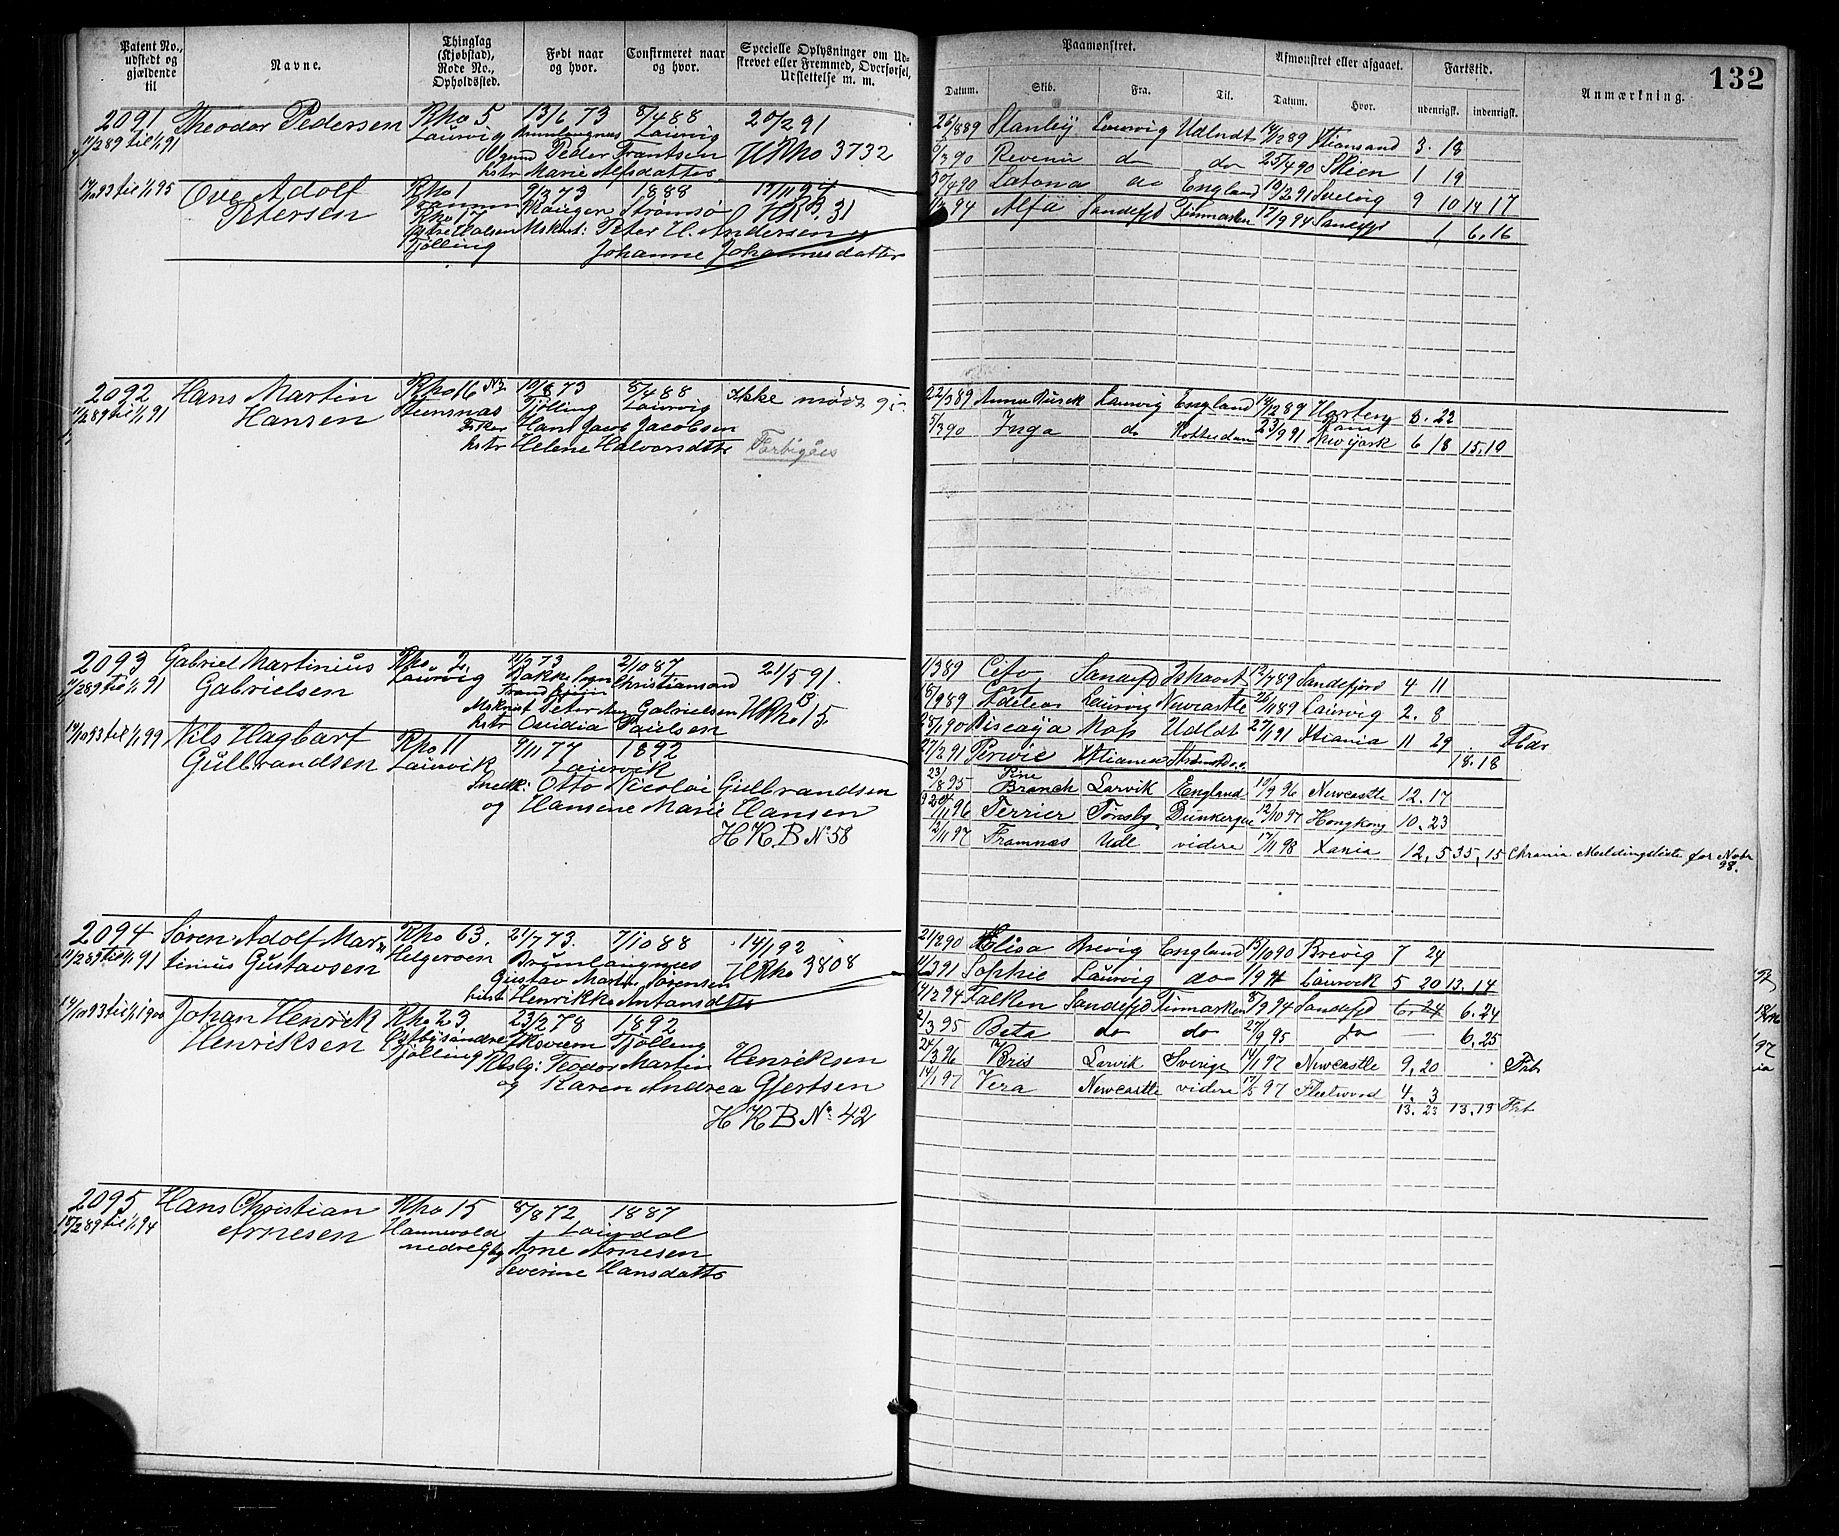 Patent No., udstedt og gjældende til
Navne.
Thinglag (Kjøbstad), Rode No., Opholdssted.
Født naar og hvor.
Confirmeret naar og hvor.
Specielle Oplysninger om Udskrevet eller Fremmed, Overførsel, Udslettelse m. m.
Paamønstret.
Datum.
Skib.
Fra.
Til.
Afmønstret eller afgaaet.
Datum.
Hvor.
Fartstid.
udenrigsk.
indenrigsk.
Anmærkning.
132
2091 Theodor Pedersen Rko 5 13/6 73 8/4 88 20/2 91
11/2 89 til 1/1 91 Laurvig Laurvig
Peder Frantsen HRko 3732
kstr Marie Alfsdatter
14/10 93 til 1/1 95 Ove Adolf Rko 1 9/3 73 1888
Petersen Strømsø
Rko 17 H.R.B. 31
Østre Halsen Mskrt: Peter H. Andersen
Tjølling Johanne Johannesdatter
2092 Hans Martin Rko 16 19/8 73 8/4 88 Ikke mødt
11/2 89 til 1/1 91 Hansen Tjølling Laurvig
Hans Jacob Jacobsen
kstr Helene Halvorsdttr Forbigåes
2093 Gabriel Martinius Rko 2 1/3 73 2/10 87 21/5 91.
11/2 89 til 1/1 91 Gabrielsen Laurvig Bakke Sogn Christiansand
Trondhjem
Peter Gabrielsen HRko 15
kstr Ovidia Paulsen
14/10 93 til 1/1 99 Nils Hagbart Rko 11 9/11 77 1892
Gulbrandsen Laurvik Laurvik
Snedk: Otto Nicolai Gulbrandsen
og Hansene Marie Hansen
H.R.B No 58
2094 Søren Adolf Mar Rko 63. 21/7 73. 7/10 88 14/1 92
11/2 89 til 1/1 91 tinius Gustavsen Helgeroen Brunlangnæs HRko 3808
Gustav Martin Sørensen
Henrikke Antansdttr
14/10 93 til 1/1 1900 Johan Henrik Rko 23 23/2 78 1892
Henriksen Østbysøndre Tjølling
Tjølling Teodor Martin Henriksen
og Karen Andrea Gjertsen
H R B No 42
2095 Hans Christian Rko 15 8/8 72 1887
18/2 89 til 1/1 94 Arnesen Laurdal
nedre Arne Arnesen
Severine Hansdattr
26/2 89 Stanley Laurvig Udlndt 14/12 89 Xtiansand 3. 13
6/3 90 Revenu do do 25/4 90 Skien 1 19
30/4 90 Latona do England 19/2 91 Svelvig 9 10 14 17
Alfa Sandefjd Finmarken 17/9 94 Sandefjd 1, 6, 16
22/3 89 Anna Laurvig England 14/12 89 8. 22
5/3 90 Inga do Rotterdam 23/9 91 New york 6 18 15, 10
1/3 89 Cito Sandefjd Ishavet 12/7 89 Sandefjord 4 11
18/9 89 Laurvig Newcastle Laurvig 2. 8
28/1 90 Biscaya Moss Udldt 27/1 91 Xtiania 11 29
27/2 91 18. 18
23/8 95 Pine Branch Larvik England 17/9 96 Newcastle 12. 17
Terrier Tønsbg Dunkerque 12/10 97 Hongkong 10. 23
12/11 97 Framnæs Udl videre 17/11 98 Xania 12, 5 35, 15 Chrania Meldingsliste for Nobr 98.
21/2 90 Elisa Brevig England 15/10 90 Brevig 7 24
11/3 91 Sophie Laurvig do Laurvik 5 20 13. 14
14/2 94 Falken Sandefjd Finmarken 8/9 94 Sandefjd 6. 24 6. 24
2/3 95 Beta do do 27/9 95 do — 6, 25
24/3 96 Bris Larvik Sverige 14/1 97 Newcastle 9, 20
14/1 97 Vera Newcastle videre 17/5 97 Fleetwood 4. 3
13. 23 13, 19